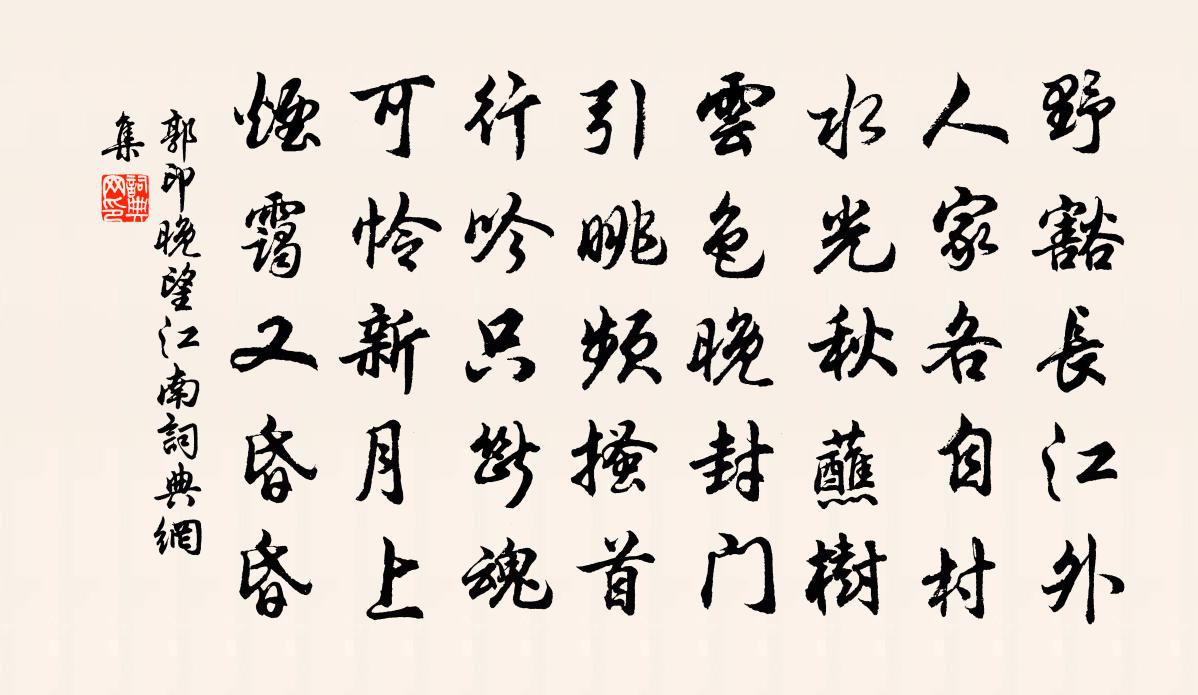 野豁長江外
人家各自村
水光秋蘸樹
雲色晚封門
引眺頻搔首
行吟只斷魂
可憐新月上
煙靄又昏昏
郭印晚望江南詞典網
集
詞典
网印